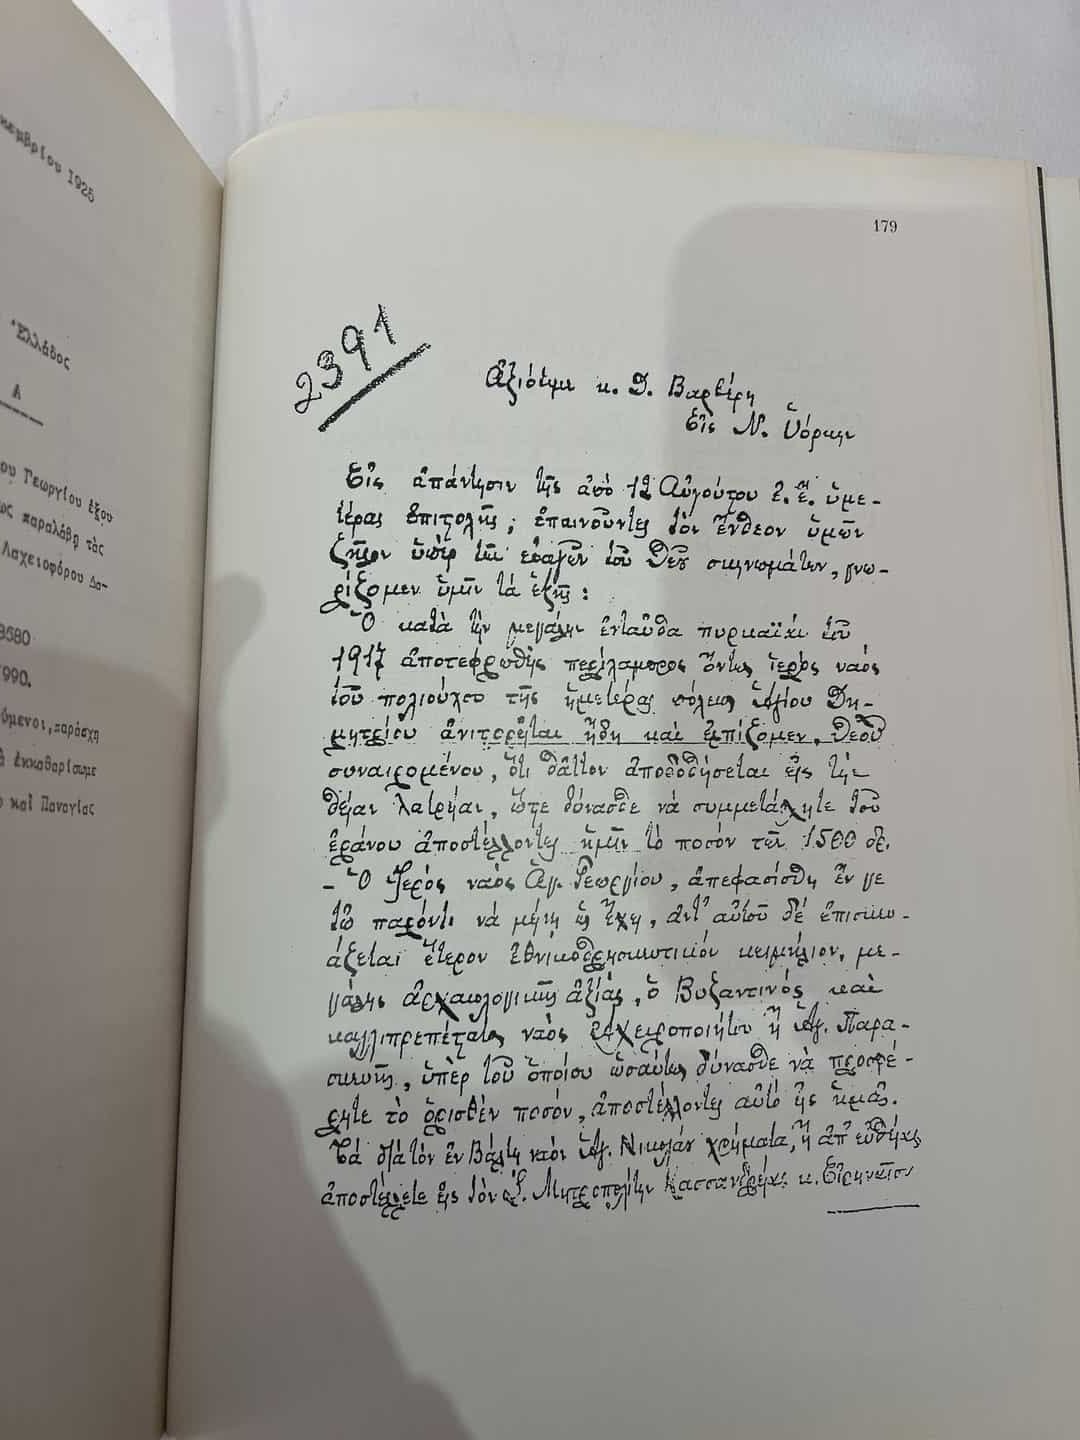 κεμβρίου 1925
Ἑλλάδος
Α
ου Γεωργίου ἐξου
ως παραλάβῃ τὰς
Λαχειοφόρου Δα-
8580
990.
όμενοι, παράσχῃ
ἐκκαθαρίσωμε
καὶ Παναγίας
179
2391
Ἀξιότιμε κ. Δ. Βαρβέρη
Εἰς Ν. Ὑόρκην
Εἰς ἀπάντησιν τῆς ἀπὸ 12 Αὐγούστου ἐ. ἔ. ὑμε-
τέρας ἐπιστολῆς, ἐπαινοῦντες τὸν ἔνθεον ὑμῶν
ζῆλον ὑπὲρ τῶν εὐαγῶν τοῦ Θεοῦ σκηνωμάτων, γνω-
ρίζομεν ὑμῖν τὰ ἑξῆς:
Ὁ κατὰ τὴν μεγάλην ἐνταῦθα πυρκαϊὰν τοῦ
1917 ἀποτεφρωθεὶς περίλαμπρος ὄντως ἱερὸς ναὸς
τοῦ πολιούχου τῆς ἡμετέρας πόλεως Ἁγίου Δη-
μητρίου ἀνιστορεῖται ἤδη καὶ ἐλπίζομεν, Θεοῦ
συναιρομένου, ὅτι θᾶττον ἀποδοθήσεται εἰς τὴν
θείαν λατρείαν, ὥστε δύνασθε νὰ συμμετάσχητε τοῦ
ἐράνου ἀποστέλλοντες ἡμῖν τὸ ποσὸν τῶν 1500 δρ.
- Ὁ Ἱερὸς ναὸς Ἁγ. Γεωργίου, ἀπεφασίσθη ἕν γε
τῷ παρόντι νὰ μείνῃ ὡς ἔχει, ἀντ' αὐτοῦ δὲ ἐπισκευ-
άζεται ἕτερον ἐθνικοθρησκευτικὸν κειμήλιον, με-
γάλης ἀρχαιολογικῆς ἀξίας, ὁ Βυζαντινὸς καὶ
καλλιπρεπέστατος ναὸς Ἀχειροποιήτου ἢ Ἁγ. Παρα-
σκευῆς, ὑπὲρ τοῦ ὁποίου ὡσαύτως δύνασθε νὰ προσφέ-
ρητε τὸ ὁρισθὲν ποσόν, ἀποστέλλοντες αὐτὸ εἰς ἡμᾶς.
Τὰ διὰ τὸν ἐν Βάλτῃ ναὸν Ἁγ. Νικολάου χρήματα, ἢ ἀπ' εὐθείας
ἀποστείλετε εἰς τὸν Σ. Μητροπολίτην Κασσανδρείας κ. Εἰρηναῖον